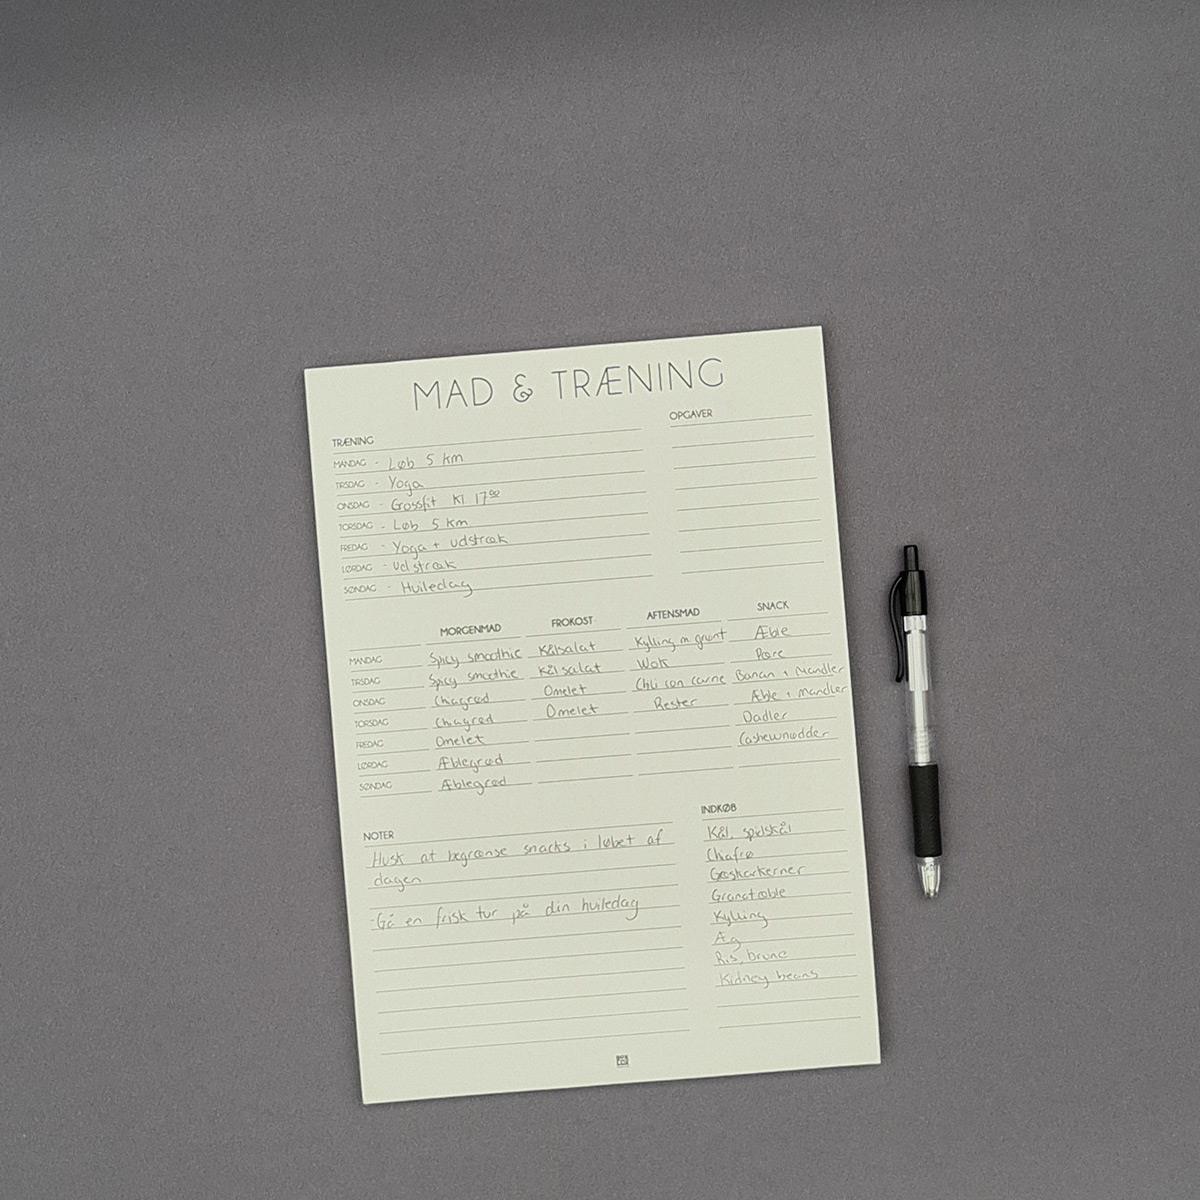 MAD & TRÆNING
TRÆNING
MANDAG - Løb 5 km
TIRSDAG - Yoga
ONSDAG - Crossfit Kl 17⁰⁰
TORSDAG - Løb 5 km
FREDAG - Yoga + udstræk
LØRDAG - Udstræk
SØNDAG - Huiledag
OPGAVER
MORGENMAD FROKOST AFTENSMAD SNACK
MANDAG Spicy smoothie Kålsalat Kylling m grønt Æble
TIRSDAG Spicy smoothie Kålsalat Wok Pære
ONSDAG Chiagrød Omelet Chili con carne Banan + Mandler
TORSDAG Chiagrød Omelet Rester Æble + mandler
FREDAG Omelet Dadler
LØRDAG Æblegrød Cashewnødder
SØNDAG Æblegrød
NOTER
Husk at begrænse snacks i løbet af
dagen
- Gå en frisk tur på din huiledag
INDKØB
Kål, spidskål
Chiafrø
Græskarkerner
Granatæble
Kylling
Æg
Ris, brune
Kidney beans